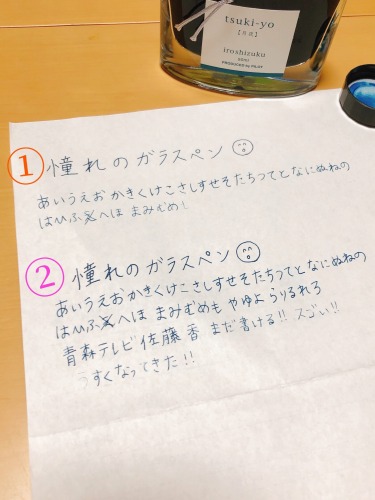 tsuki-yo
[月夜]
iroshizuku
50ml
PRODUCED by PILOT
1 憧れのガラスペン
あいうえおかきくけこさしすせそたちつてとなにぬねの
はひふへほ まみむめ!
2 憧れのガラスペン
あいうえおかきくけこさしすせそたちつてとなにぬねの
はひふへほ まみむめも やゆよ らりるれろ
青森テレビ佐藤香 まだ書ける!! スゴい!!
うすくなってきた!!